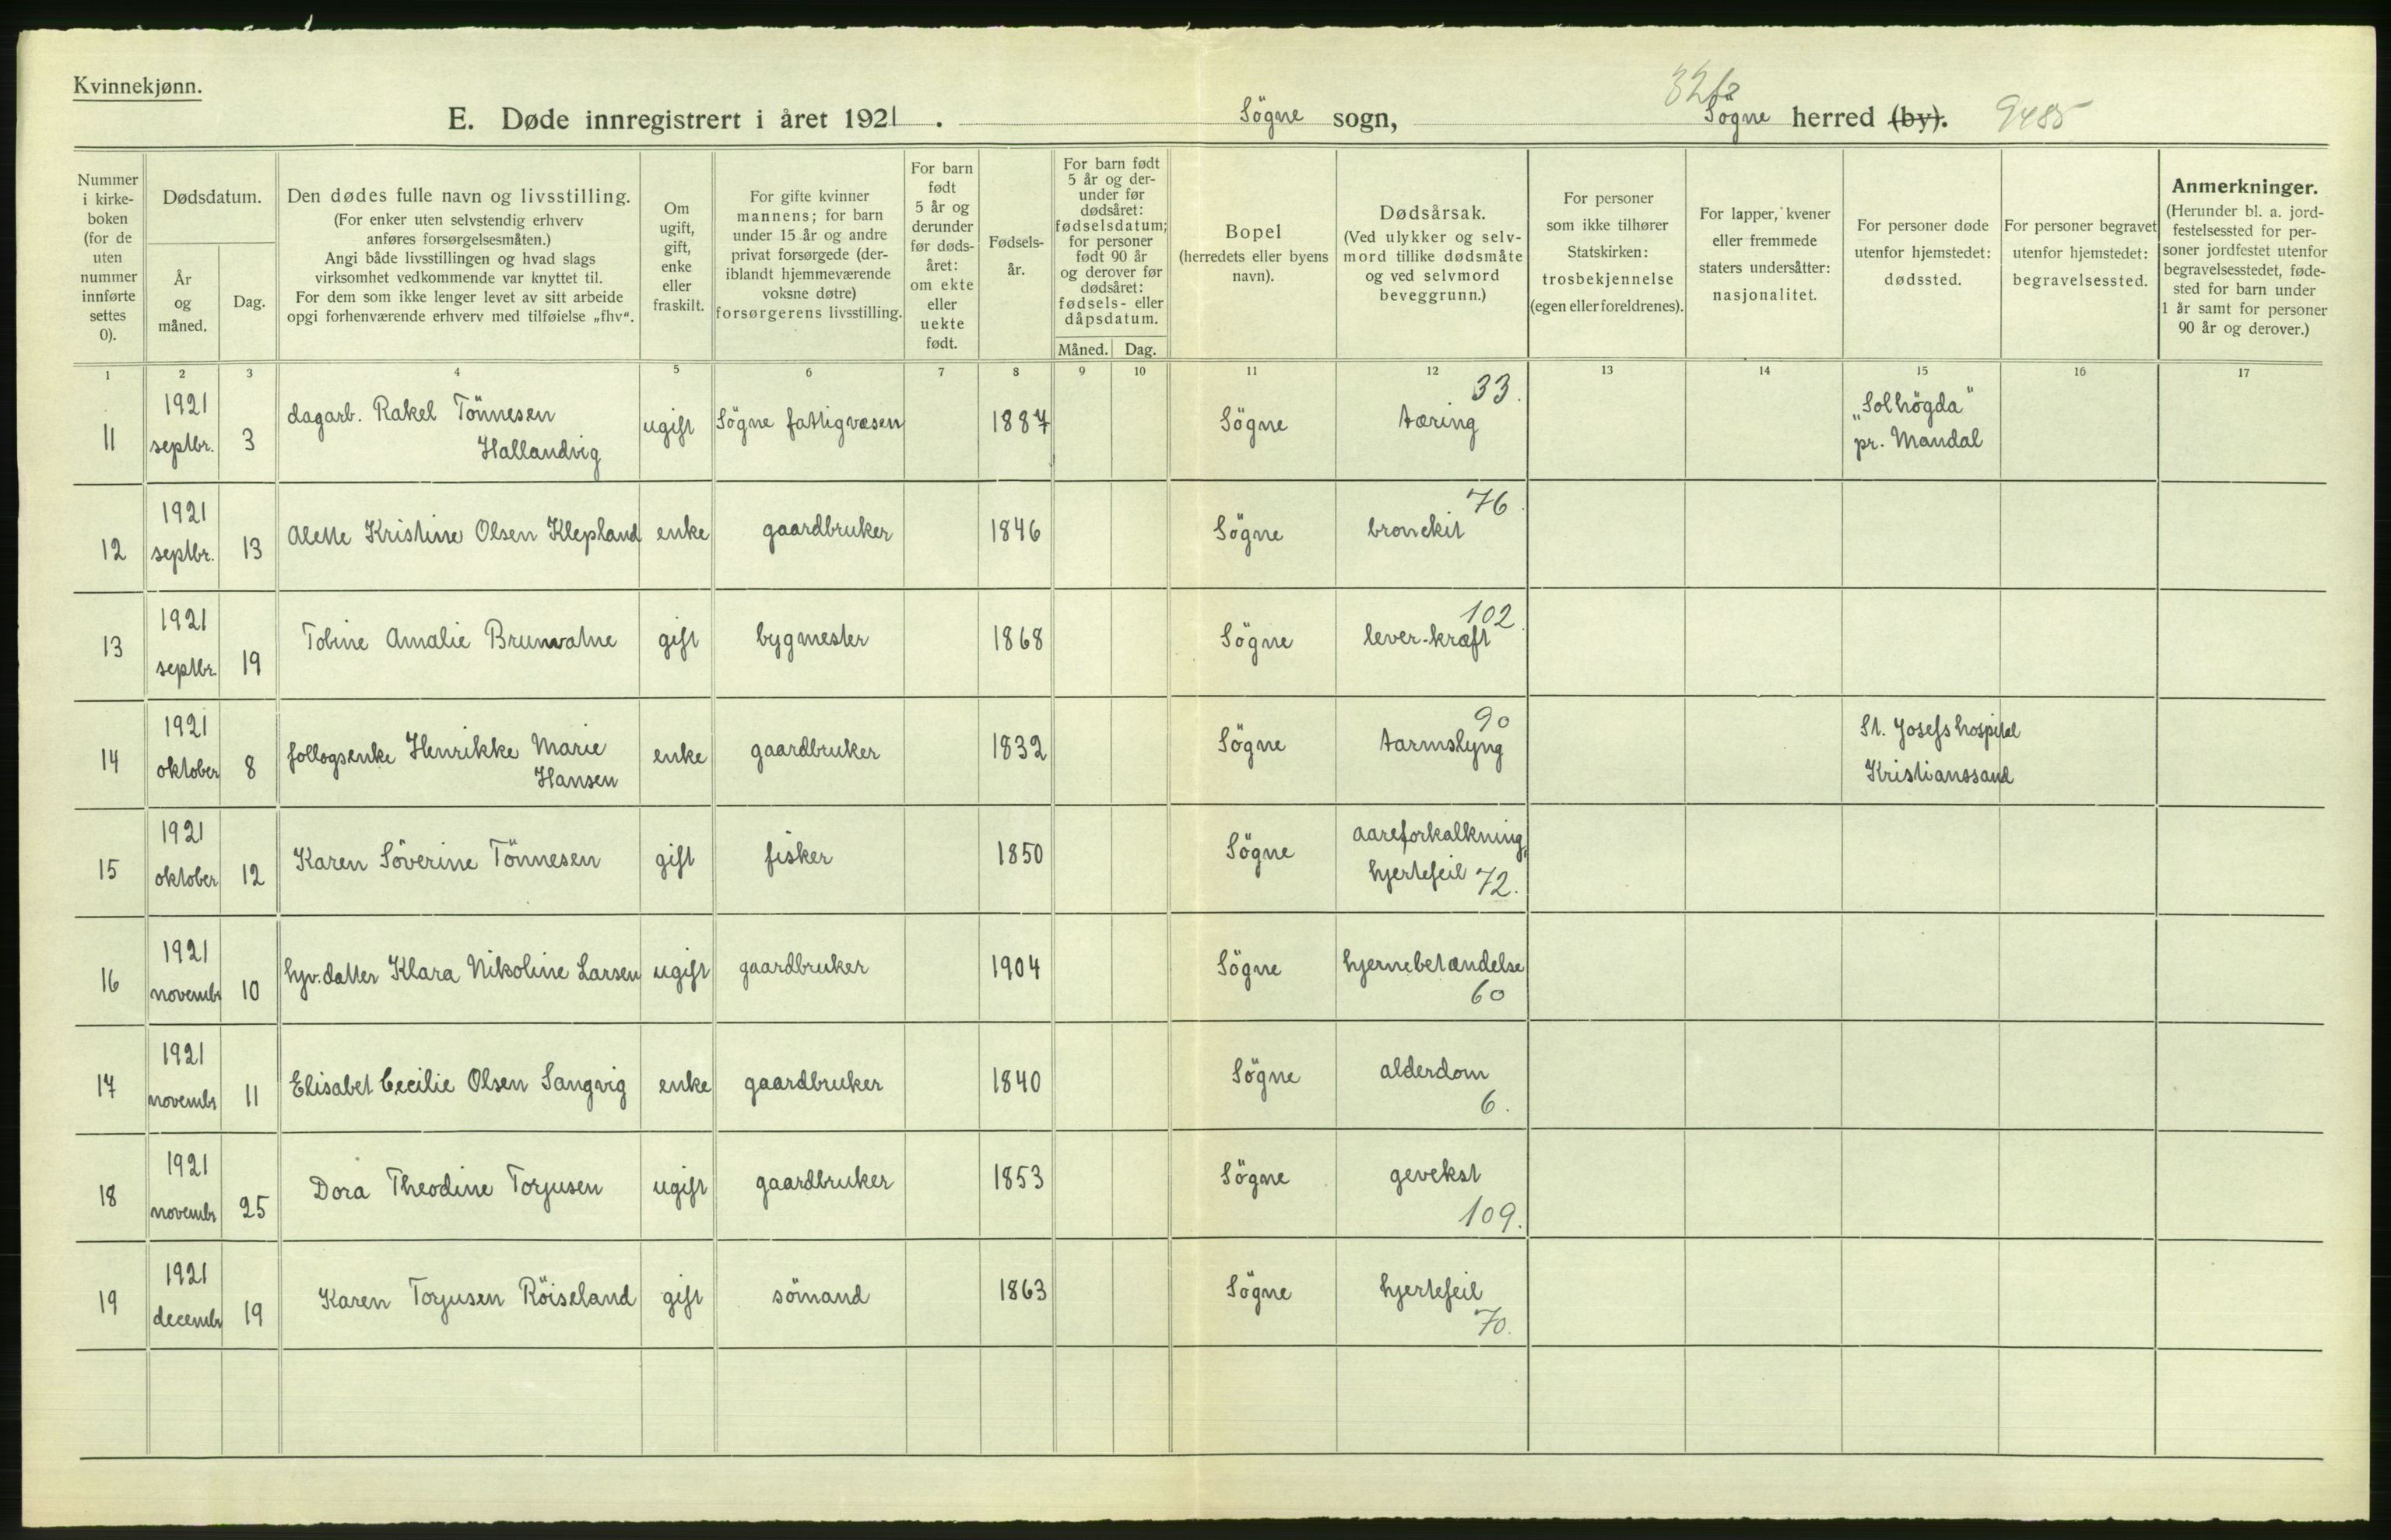 Kvinnekjønn.
E. Døde innregistrert i året 1921. Søgne sogn, Søgne herred (by). 9485
Nummer i kirkeboken (for de uten nummer innførte settes 0).
Dødsdatum.
År og måned.
Dag.
Den dødes fulle navn og livsstilling.
(For enker uten selvstendig erhverv
anføres forsørgelsesmåten.)
Angi både livsstillingen og hvad slags
virksomhet vedkommende var knyttet til.
For dem som ikke lenger levet av sitt arbeide
opgi forhenværende erhverv med tilføielse „fhv“.
Om ugift, gift, enke eller fraskilt.
For gifte kvinner
mannens; for barn
under 15 år og andre
privat forsørgede (der-
iblandt hjemmeværende
voksne døtre)
forsørgerens livsstilling.
For barn født 5 år og derunder før dødsåret: om ekte eller uekte født.
Fødsels-
år.
For barn født
5 år og der-
under før
dødsåret:
fødselsdatum;
for personer
født 90 år
og derover før
dødsåret:
fødsels- eller
dåpsdatum.
Måned. Dag.
Bopel
(herredets eller byens
navn).
Dødsårsak.
(Ved ulykker og selv-
mord tillike dødsmåte
og ved selvmord
beveggrunn.)
For personer
som ikke tilhører
Statskirken:
trosbekjennelse
(egen eller foreldrenes).
For lapper, kvener
eller fremmede
staters undersåtter:
nasjonalitet.
For personer døde
utenfor hjemstedet:
dødssted.
For personer begravet
utenfor hjemstedet:
begravelsessted.
Anmerkninger.
(Herunder bl. a. jord-
festelsessted for per-
soner jordfestet utenfor
begravelsesstedet, føde-
sted for barn under
1 år samt for personer
90 år og derover.)
1 2 3 4 5 6 7 8 9 10 11 12 13 14 15 16 17
11 1921 septbr. 3 dagarb. Rakel Tönnesen Hallandvig ugift Sögne fattigvæsen 1887 Sögne tæring 33. „Solhögda“ pr. Mandal
12 1921 septbr. 13 Alette Kristine Olsen Klepland enke gaardbruker 1846 Sögne bronekit 76.
13 1921 septbr. 19 Tobine Amalie Brunvatne gift bygmester 1868 Sögne lever-kræft 102.
14 1921 oktober 8 follogsenke Henrikke Marie Hansen enke gaardbruker 1832 Sögne tarmslyng 90 St. Josefs hospital Kristianssand
15 1921 oktober 12 Karen Söverine Tönnesen gift fisker 1850 Sögne aareforkalkning, hjertefeil 72.
16 1921 novembr 10 hjv. datter Klara Nikoline Larsen ugift gaardbruker 1904 Sögne hjernebetændelse 60
17 1921 novembr 11 Elisabet Cecilie Olsen Sangvig enke gaardbruker 1840 Sögne alderdom 6.
18 1921 novembr 25 Dora Theodine Torjusen ugift gaardbruker 1853 Sögne gevekst 109.
19 1921 decembr 19 Karen Torjusen Röiseland gift sömand 1863 Sögne hjertefeil 70.